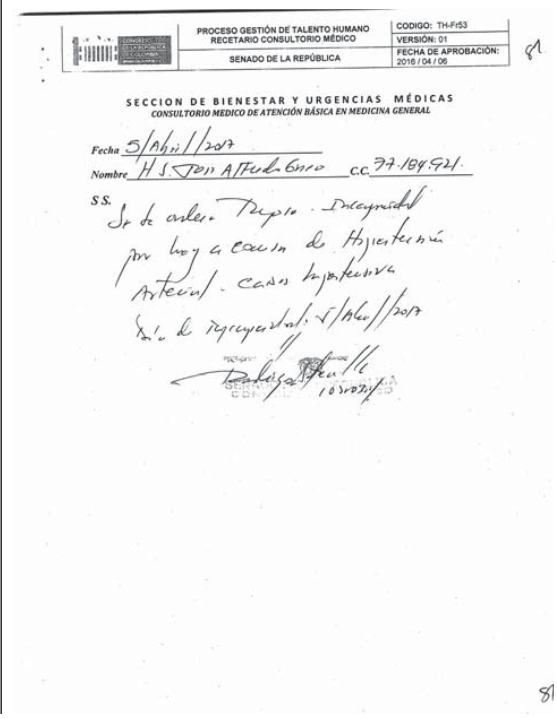 CONGRESO
DE LA REPÚBLICA
DE COLOMBIA
PROCESO GESTIÓN DE TALENTO HUMANO
RECETARIO CONSULTORIO MÉDICO
SENADO DE LA REPÚBLICA
CODIGO: TH-Fr53
VERSIÓN: 01
FECHA DE APROBACIÓN:
2016 / 04 / 06
SECCION DE BIENESTAR Y URGENCIAS MÉDICAS
CONSULTORIO MEDICO DE ATENCIÓN BÁSICA EN MEDICINA GENERAL
Fecha 5/Abril/2017
Nombre H S. C.C. 77.184.921.
S S.
Se le ordena Incapacidad
por hoy a causa de Hipertensión
Arterial - Hipertensiva
Día de incapacidad. 5/Abril/2017